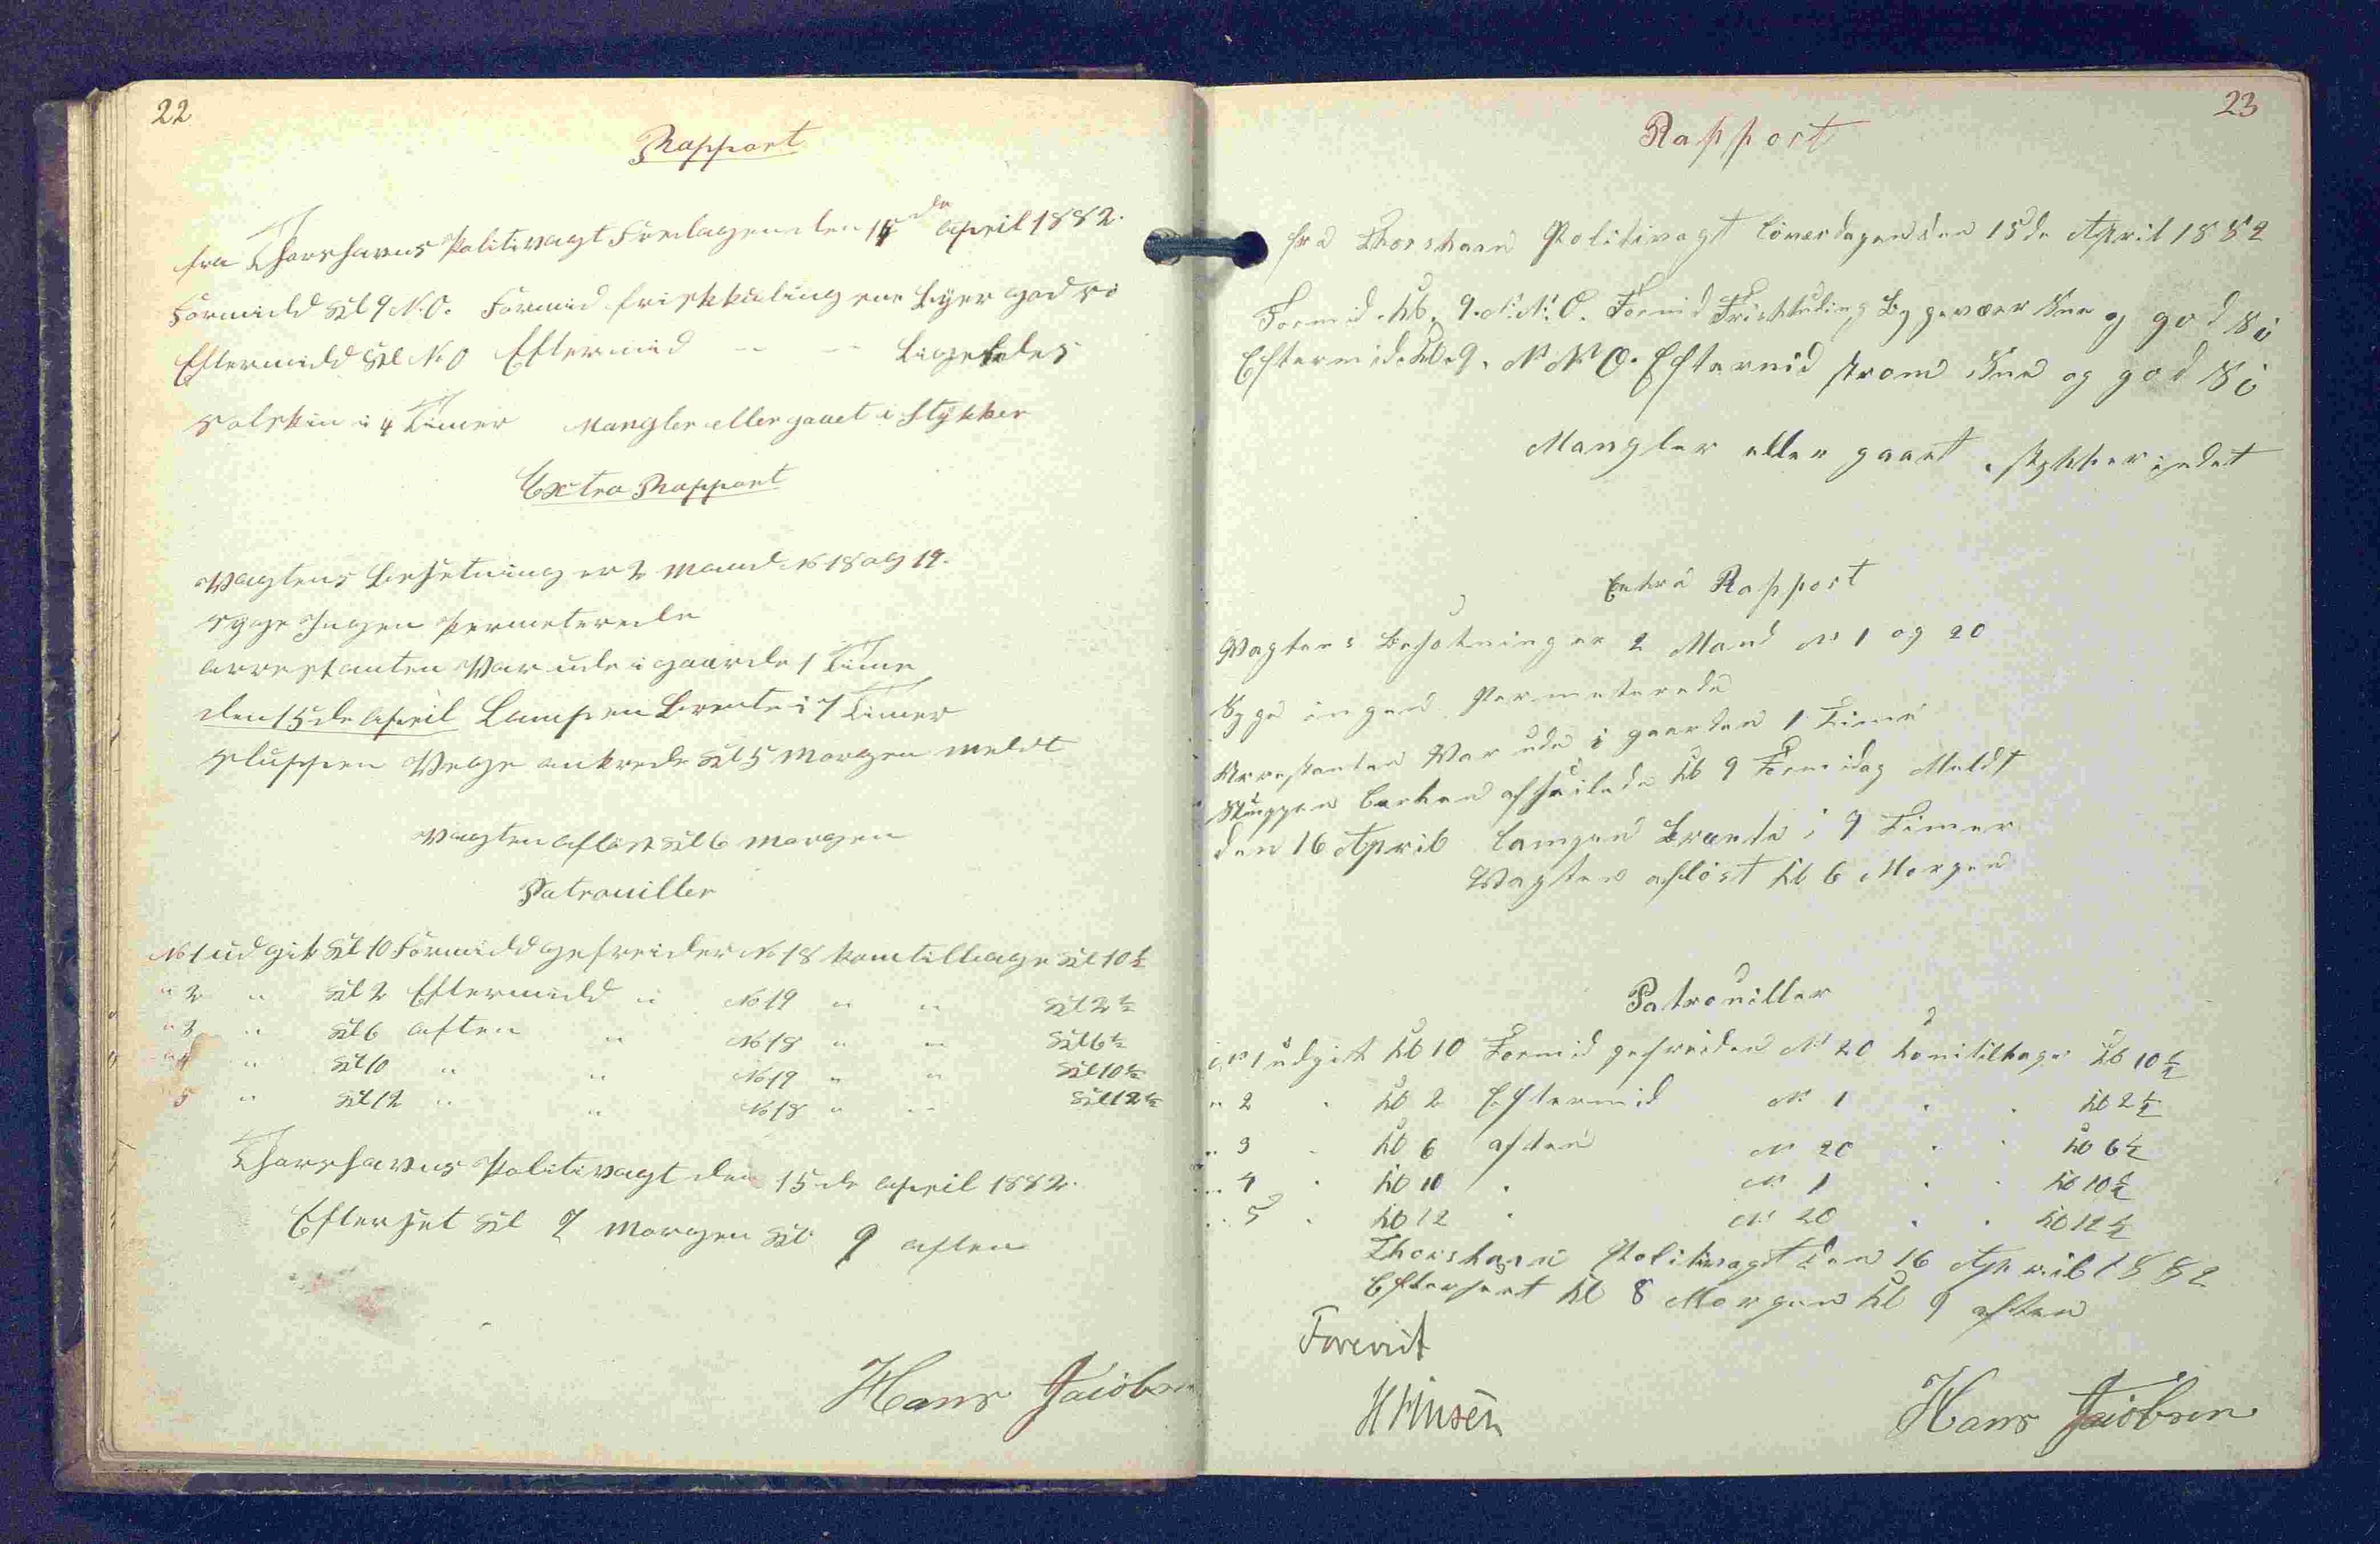 22
Rapport
fra Thorshavns Politivagt Fredagen den 14de April 1882.
Formidd Kl 9 N.O. Formid frisk kuling ene byer god si
Eftermidd Kl N O Eftermid " " Ligeledes
Solskin i 4 Timer Mangler eller gaaet i stykker
Extra Rapport
Vagtens Besetning er 2 Mand No 18 og 19.
Syge Ingen Permeterede
Arrestanten Var ude i gaarde 1 Time
den 15de April Lampen Brente i 7 Timer
Sluppen ankrede Kl 5 Morgen meldt
Vagten aflöst Kl 6 Morgen
Patrouiller
No 1 udgik Kl 10 Formidd gefreider No 18 kom tilbage Kl 10½
" 2 " Kl 2 Eftermidd " No 19 " " Kl 2½
" 3 " Kl 6 Aften " No 18 " " Kl 6½
" 4 " Kl 10 " " No 19 " " Kl 10½
5 " Kl 12 " " No 18 " " Kl 12½
Thorshavns Politivagt den 15de April 1882.
Efterset Kl 7 Morgen Kl 9 aften
Hans Jacobsen
23
Rapport
fra Thorshavn Politivagt Löverdagen den 15de April 1882
Formid. Kl. 9. N.N.O. Formid Frisk Kuling Bygeveer Sne og god Si
Eftermid. Kl. 9. N N O. Eftermid Sne og god Si
Mangler eller gaaet i stykker indet
Extra Rapport
Vagtens Besetning er 2 Mand No 1 og 20
Syge ingen Permeterede
Arrestanten Var ude i gaarden 1 Time
Sluppen afseilede Kl 9 Formidag Meldt
den 16 April Lampen Brente i 9 Timer
Vagten aflöst Kl 6 Morgen
Patrouiller
No 1 udgik Kl 10 Formid gefreider No 20 komtilbage Kl 10½
" 2 " Kl 2 Eftermid No 1 " " Kl 2½
" 3 " Kl 6 aften No 20 " " Kl 6½
" 4 " Kl 10 " No 1 " " Kl 10½
" 5 " Kl 12 " No 20 " " Kl 12½
Thorshavn Politivagt den 16 April 1882
Efterseet Kl 8 Morgen Kl 9 aften
Forevist
Hans Jacobsen